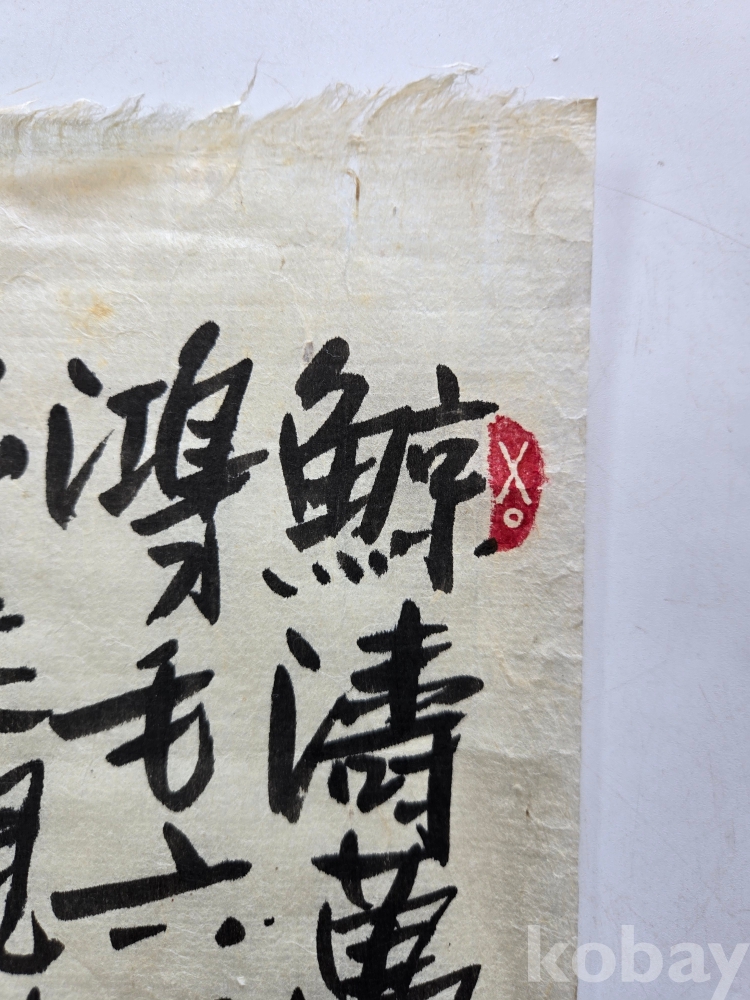 鯨濤萬
鴻毛六
kobay